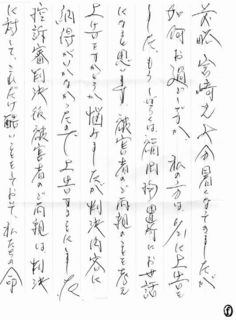 前略 宮崎も大分暑くなってきましたが
如何お過しですか 私の方は6/に上告を
しました。もうしばらくは、福岡拘置所にお世話
になると思います。被害者のご両親のことも考え
上告をするかどうか悩みましたが判決内容に
納得がいかなかったので上告することにしました
控訴審判決後被害者のご両親は、判決
に対して、これだけ酷いことをしておいて、私たちの命